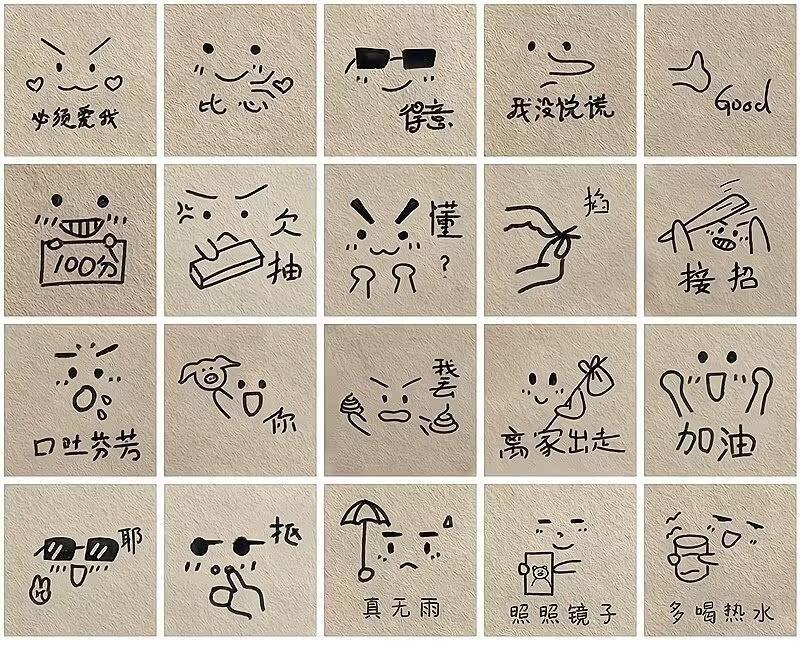 必须爱我
比心
得意
我没说谎
Good
100分
欠
抽
懂
?
掐
接招
口吐芬芳
你
我
丢
离家出走
加油
耶
抠
真无雨
照照镜子
多喝热水